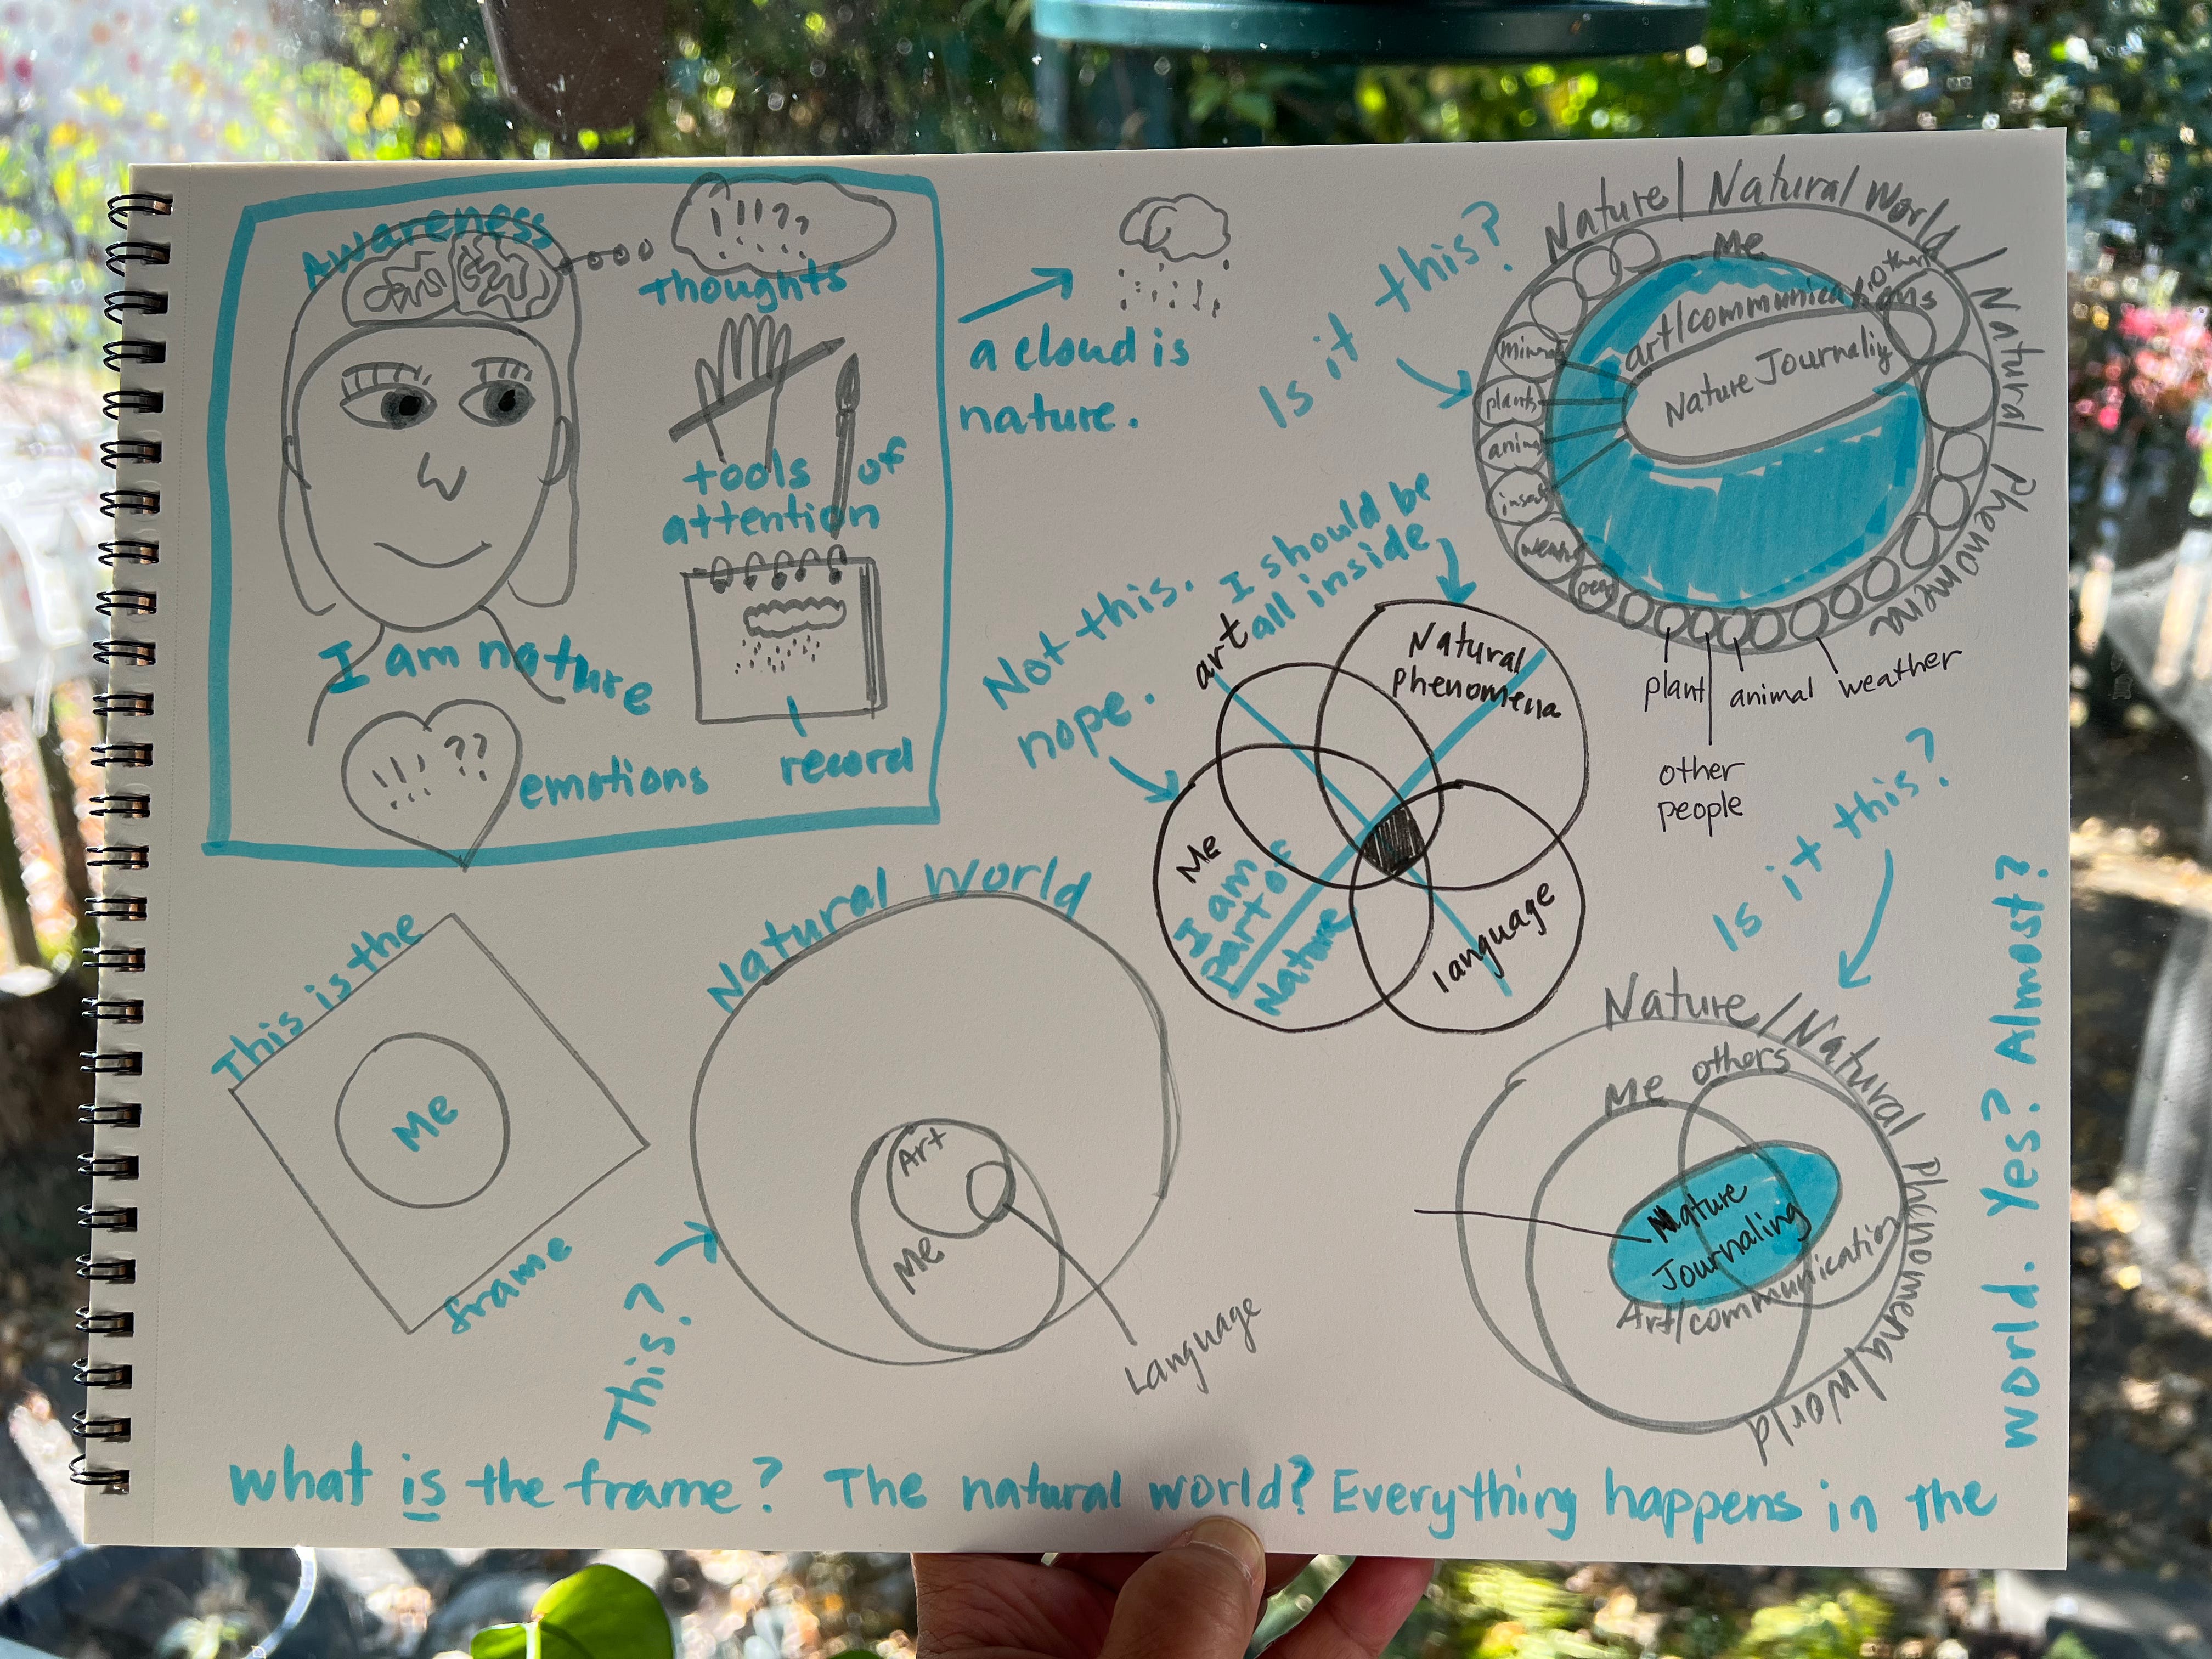 Awareness
!!!??
thoughts
tools of
attention
I am nature
!!! ??
emotions
I
record
a cloud is
nature.
Is it this?
Nature/Natural World/Natural Phenomena
Me
others
art/communications
Nature Journaling
plants
plant
animal
weather
other
people
Not this.
nope.
I should be
all inside
art
Natural
phenomena
Me
I am
part of
Nature
language
Is it this?
Nature/Natural Phenomena/world
Me
others
Nature
Journaling
Art/communication
This is the
Me
frame
Natural World
Art
Me
Language
This?
what is the frame? The natural world? Everything happens in the
world. Yes? Almost?